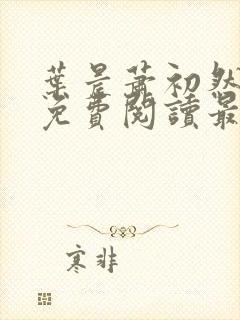 葉辰蕭初然
免費閱讀最
寒非